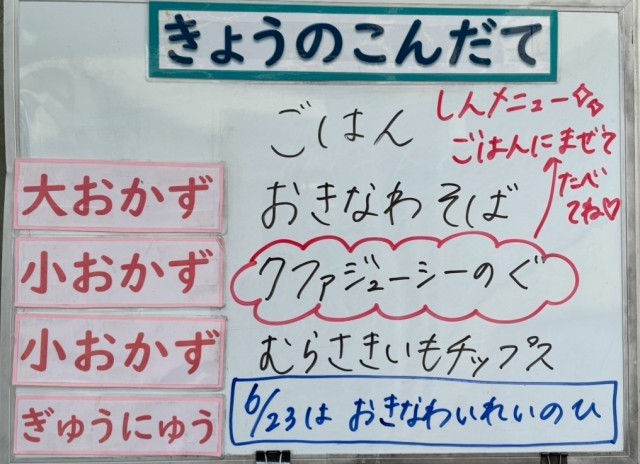 きょうのこんだて
ごはん
しんメニュー
ごはんにまぜて
たべ
てね♡
大おかず
おきなわそば
小おかず
クファジューシーのぐ
小おかず
むらさきいもチップス
ぎゅうにゅう
6/23は おきなわいれいのひ